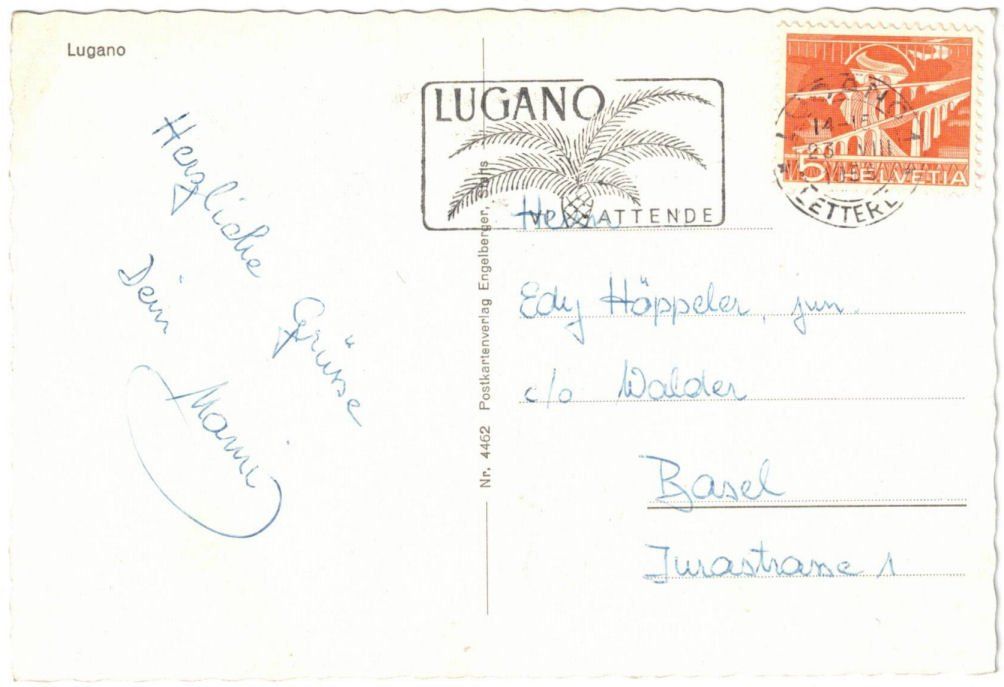 Lugano
Herzliche Grüsse
Dein
Mami
Nr. 4462 Postkartenverlag Engelberger, Stans
LUGANO
VI ATTENDE
LUGANO 1
14-
23 VIII
195
LETTERE
5 HELVETIA
Herrn
Edy Höppeler, jun.
c/o Walder
Basel
Jurastrasse 1